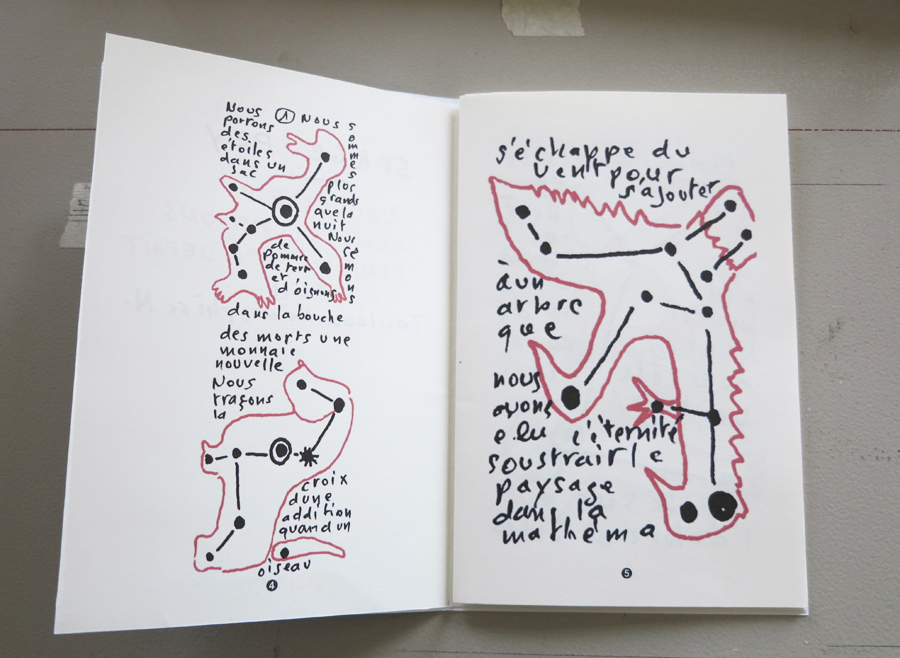 Nous
portons
des
étoiles
dans un
sac
1 Nous
sommes
plus
grands
que la
nuit
Nous
semons
de
pomme
de terr
et
d'oignons
dans la bouche
des morts une
monnaie
nouvelle
Nous
traçons
la
croix
dune
addition
quand un
oiseau
4
s'échappe du
vent pour
s'ajouter
à un
arbre
que
nous
avons
elu l'éternité
soustrair le
paysage
dans la
mathéma
5